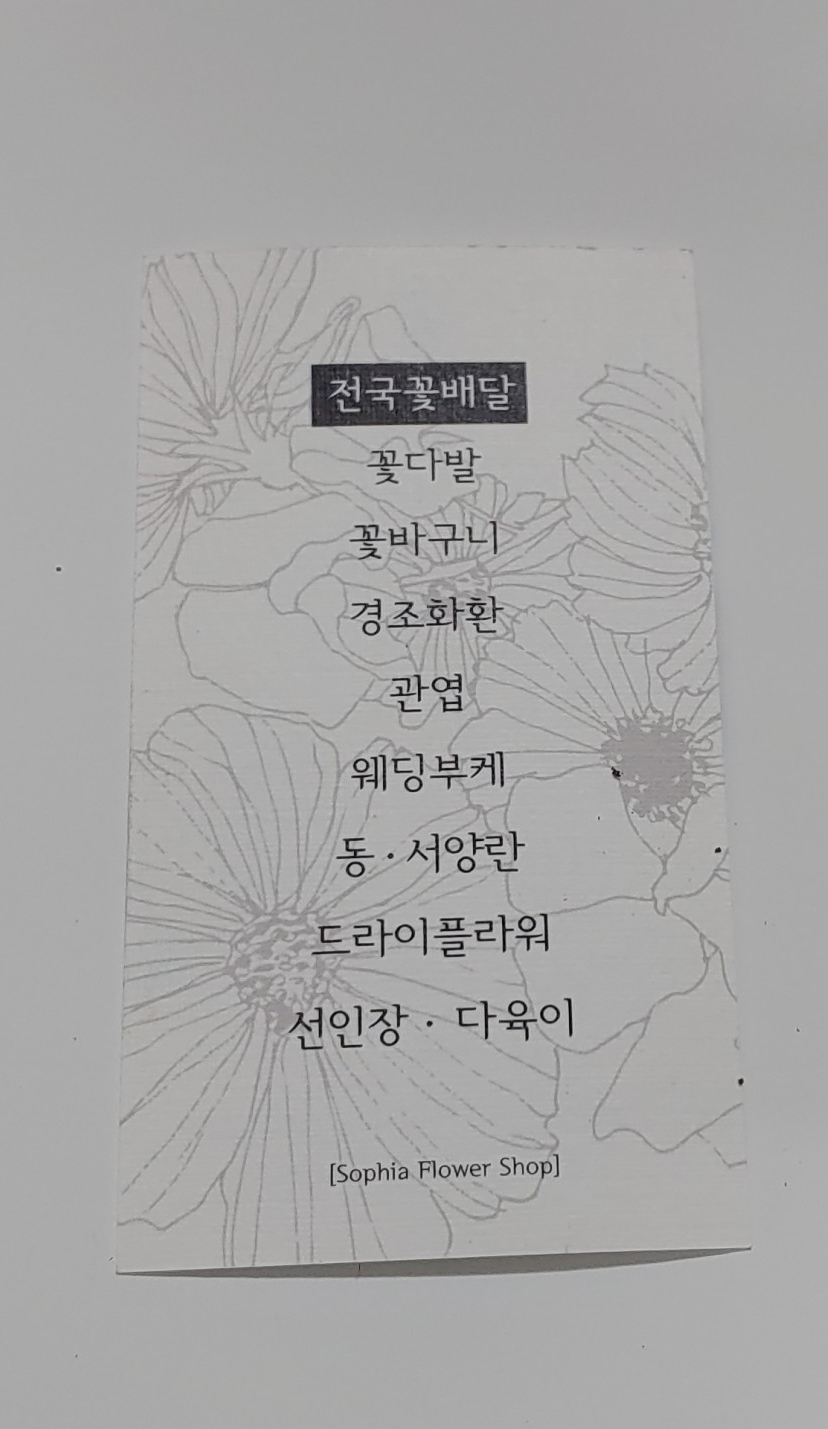 전국꽃배달
꽃다발
꽃바구니
경조화환
관엽
웨딩부케
동·서양란
드라이플라워
선인장 · 다육이
[Sophia Flower Shop]